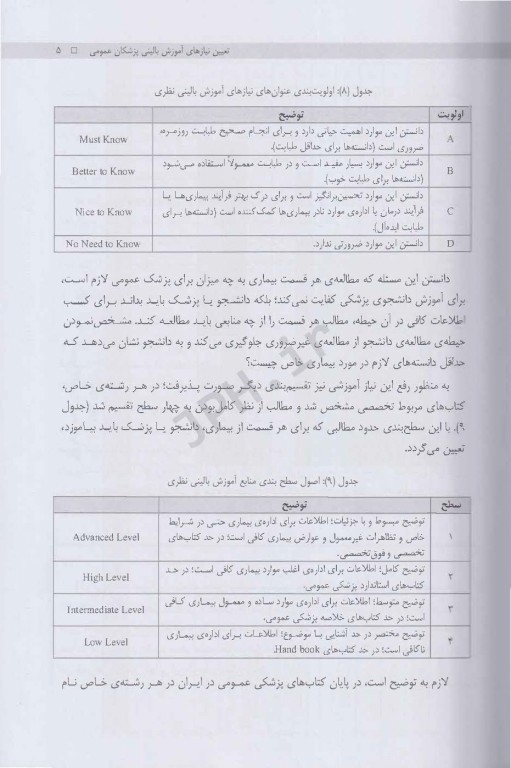 تعیین نیازهای آموزش بالینی پزشکان عمومی □ ۵
جدول (۸): اولویت‌بندی عنوان‌های نیازهای آموزش بالینی نظری
اولویت توضیح
A دانستن این موارد اهمیت حیاتی دارد و برای انجام صحیح طبابت روزمره، Must Know
ضروری است (دانسته‌ها برای حداقل طبابت).
B دانستن این موارد بسیار مفید است و در طبابت معمولاً استفاده می‌شود Better to Know
(دانسته‌ها برای طبابت خوب).
C دانستن این موارد تحسین‌برانگیز است و برای درک بهتر فرآیند بیماری‌ها یا Nice to Know
فرآیند درمان یا اداره‌ی موارد نادر بیماری‌ها کمک‌کننده است (دانسته‌ها برای
طبابت ایده‌آل).
D دانستن این موارد ضرورتی ندارد. No Need to Know
دانستن این مسئله که مطالعه‌ی هر قسمت بیماری به چه میزان برای پزشک عمومی لازم است،
برای آموزش دانشجوی پزشکی کفایت نمی‌کند؛ بلکه دانشجو یا پزشک باید بداند برای کسب
اطلاعات کافی در آن حیطه، مطالب هر قسمت را از چه منابعی باید مطالعه کند. مشخص‌نمودن
حیطه‌ی مطالعه‌ی دانشجو از مطالعه‌ی غیرضروری جلوگیری می‌کند و به دانشجو نشان می‌دهد که
حداقل دانسته‌های لازم در مورد بیماری خاص چیست؟
به منظور رفع این نیاز آموزشی نیز تقسیم‌بندی دیگر صورت پذیرفت؛ در هر رشته‌ی خاص،
کتاب‌های مربوط تخصصی مشخص شد و مطالب از نظر کامل‌بودن به چهار سطح تقسیم شد (جدول
۹). با این سطح‌بندی حدود مطالبی که برای هر قسمت از بیماری، دانشجو یا پزشک باید بیاموزد،
تعیین می‌گردد.
جدول (۹): اصول سطح بندی منابع آموزش بالینی نظری
سطح توضیح
۱ توضیح مبسوط و با جزئیات؛ اطلاعات برای اداره‌ی بیماری حتی در شرایط Advanced Level
خاص و تظاهرات غیرمعمول و عوارض بیماری کافی است؛ در حد کتاب‌های
تخصصی و فوق‌تخصصی.
۲ توضیح کامل؛ اطلاعات برای اداره‌ی اغلب موارد بیماری کافی است؛ در حد High Level
کتاب‌های استاندارد پزشکی عمومی.
۳ توضیح متوسط؛ اطلاعات برای اداره‌ی موارد ساده و معمول بیماری کافی Intermediate Level
است؛ در حد کتاب‌های خلاصه پزشکی عمومی.
۴ توضیح مختصر در حد آشنایی با موضوع؛ اطلاعات برای اداره‌ی بیماری Low Level
ناکافی است؛ در حد کتاب‌های Hand book.
لازم به توضیح است، در پایان کتاب‌های پزشکی عمومی در ایران در هر رشته‌ی خاص نام
JPH.ir